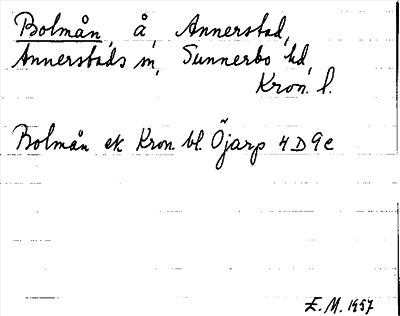 Bolmån, å, Annerstad,
Annerstads sn, Sunnerbo hd,
Kron. l.
Bolmån ek Kron bl. Öjarp 4D9e
E. M. 1957